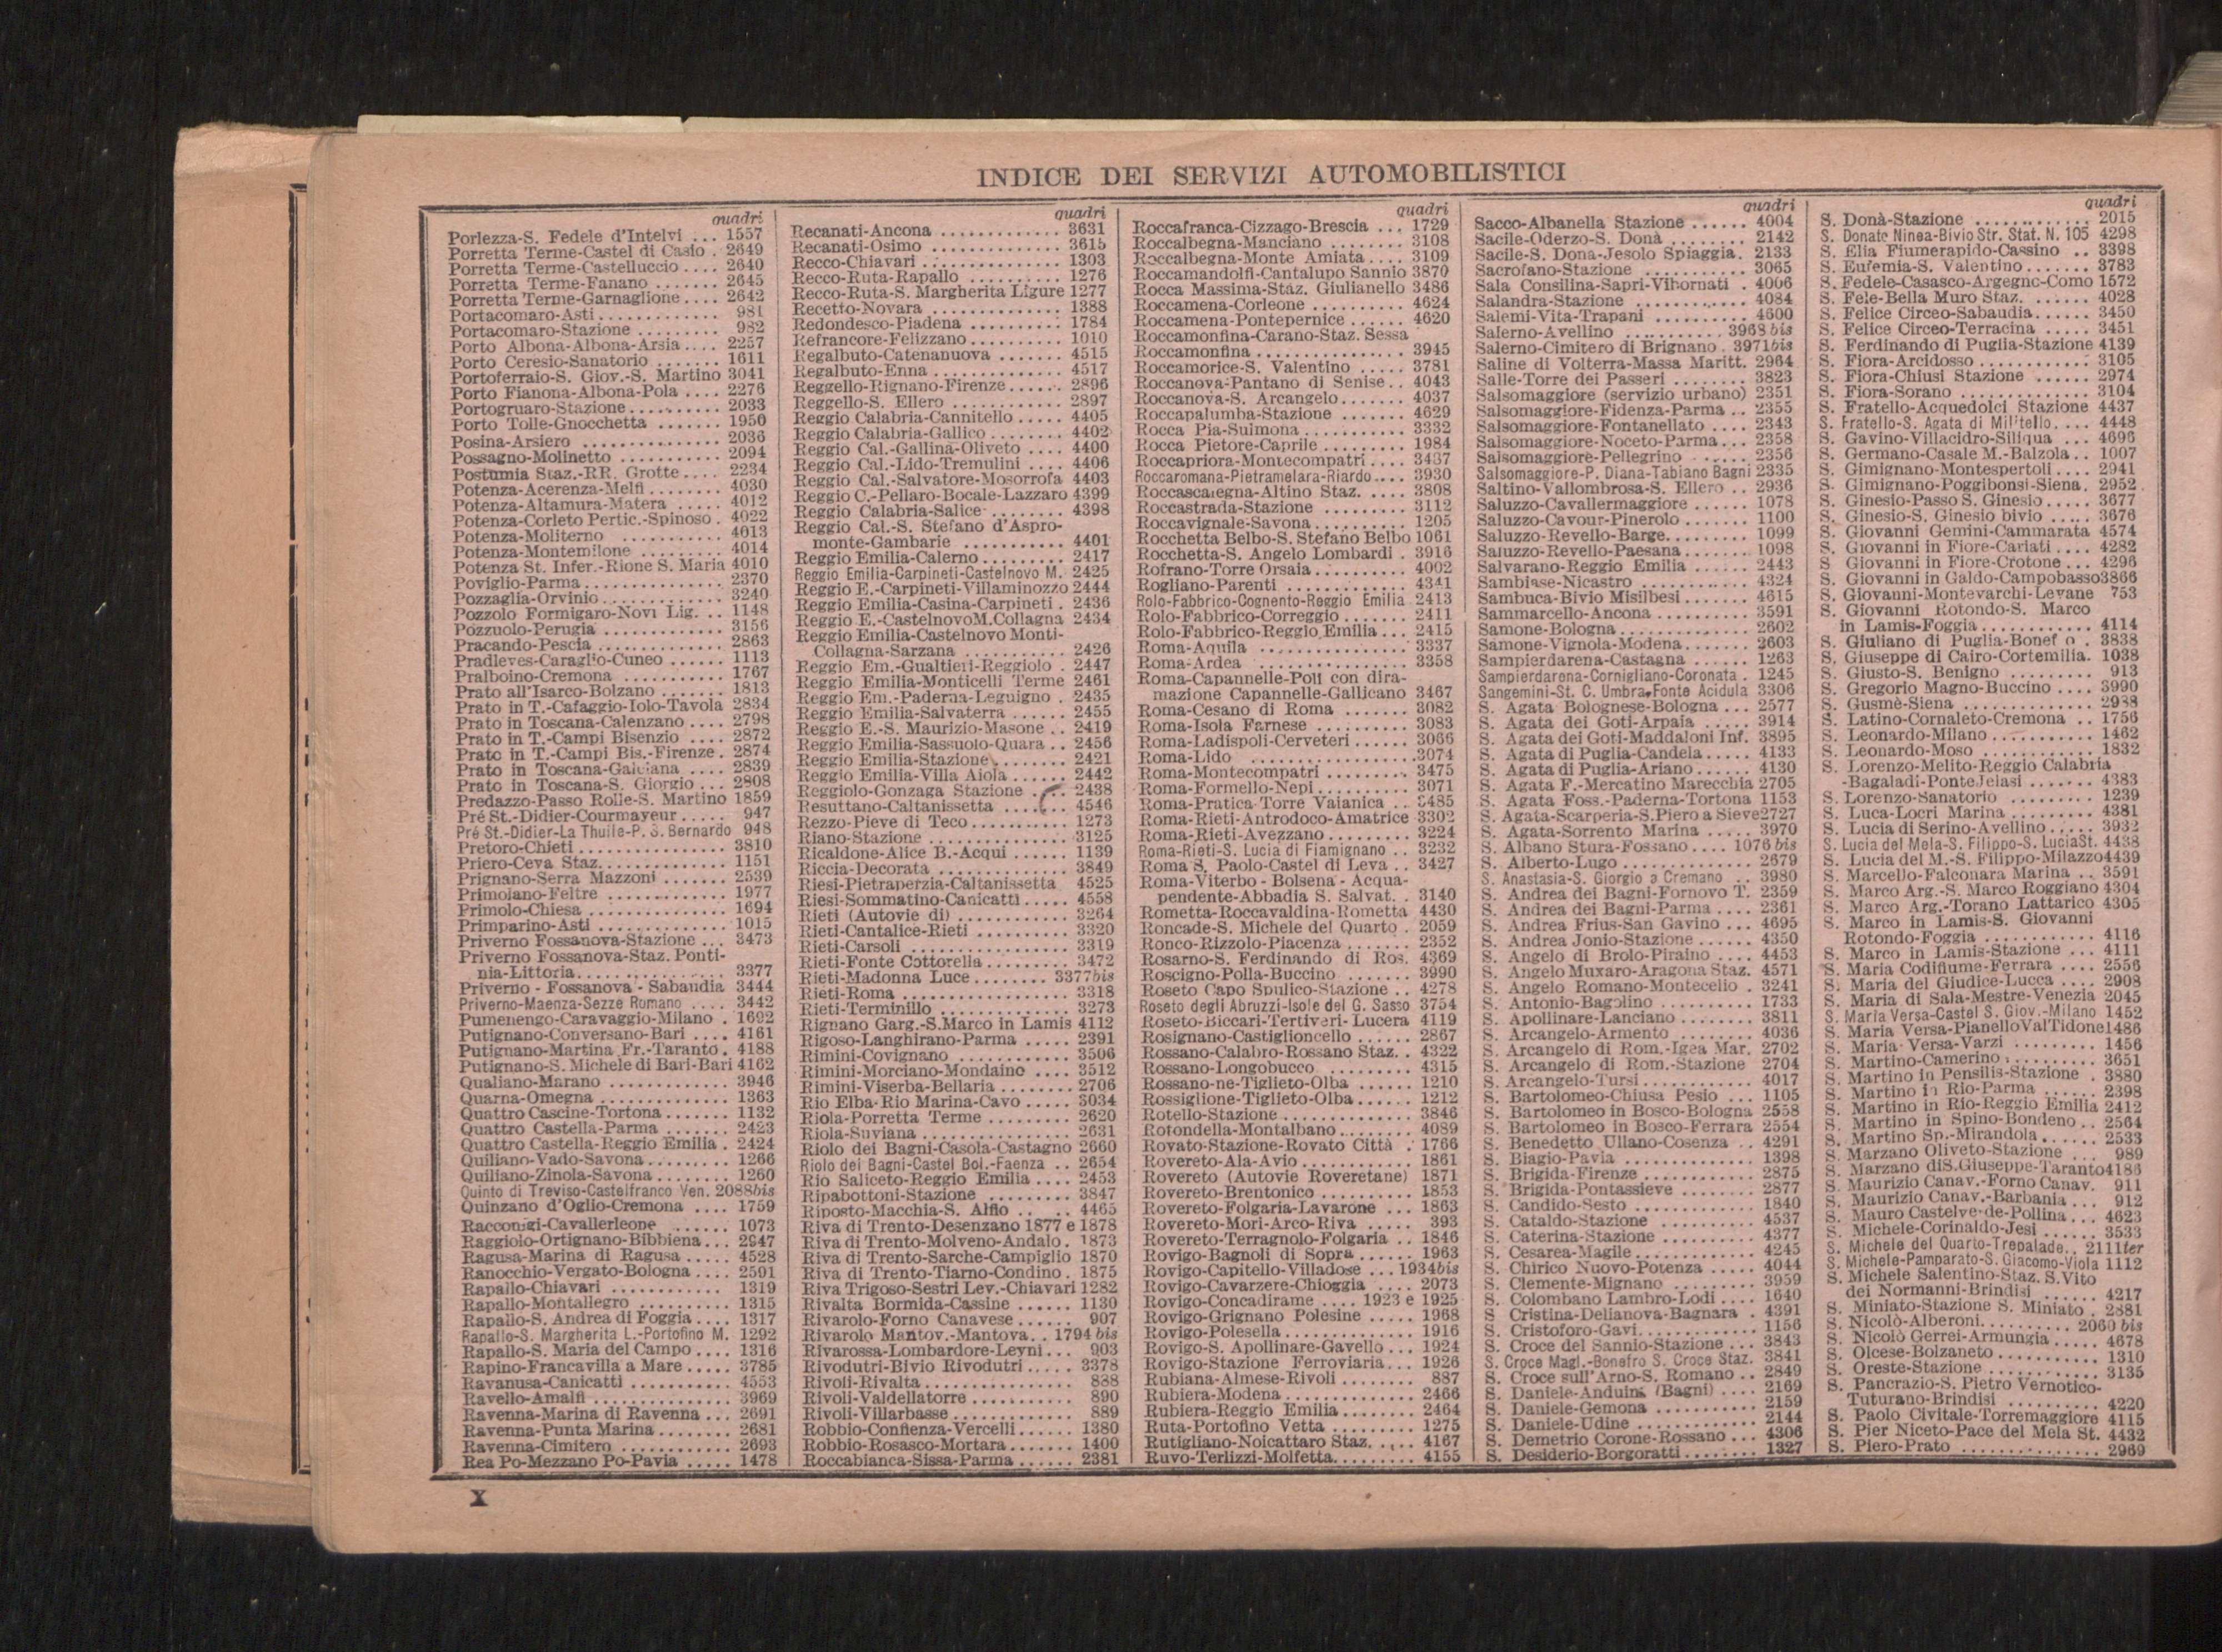 INDICE DEI SERVIZI AUTOMOBILISTICI
quadri
Porlezza-S. Fedele d'Intelvi ... 1557
Porretta Terme-Castel di Casio . 2649
Porretta Terme-Castelluccio .... 2640
Porretta Terme-Fanano ....... 2645
Porretta Terme-Garnaglione .... 2642
Portacomaro-Asti ............. 981
Portacomaro-Stazione ......... 982
Porto Albona-Albona-Arsia .... 2257
Porto Ceresio-Sanatorio ....... 1611
Portoferraio-S. Giov.-S. Martino 3041
Porto Fianona-Albona-Pola .... 2276
Portogruaro-Stazione .......... 2033
Porto Tolle-Gnocchetta ....... 1950
Posina-Arsiero ............... 2036
Possagno-Molinetto ........... 2094
Postumia Staz.-RR. Grotte .... 2234
Potenza-Acerenza-Melfi ........ 4030
Potenza-Altamura-Matera ..... 4012
Potenza-Corleto Pertic.-Spinoso . 4022
Potenza-Moliterno ........... 4013
Potenza-Montemilone ......... 4014
Potenza St. Infer.-Rione S. Maria 4010
Poviglio-Parma ............... 2370
Pozzaglia-Orvinio ............. 3240
Pozzolo Formigaro-Novi Lig. .. 1148
Pozzuolo-Perugia ............. 3156
Pracando-Pescia .............. 2863
Pradleves-Caraglio-Cuneo ...... 1113
Pralboino-Cremona ........... 1767
Prato all'Isarco-Bolzano ....... 1813
Prato in T.-Cafaggio-Iolo-Tavola 2834
Prato in Toscana-Calenzano .... 2798
Prato in T.-Campi Bisenzio .... 2872
Prato in T.-Campi Bis.-Firenze . 2874
Prato in Toscana-Galciana .... 2839
Prato in Toscana-S. Giorgio ... 2808
Predazzo-Passo Rolle-S. Martino 1859
Pré St.-Didier-Courmayeur ..... 947
Pré St.-Didier-La Thuile-P. S. Bernardo 948
Pretoro-Chieti ............... 3810
Priero-Ceva Staz. ............. 1151
Prignano-Serra Mazzoni ....... 2539
Primolano-Feltre ............. 1977
Primolo-Chiesa ............... 1694
Primparino-Asti .............. 1015
Priverno Fossanova-Stazione ... 3473
Priverno Fossanova-Staz. Ponti-
nia-Littoria ............... 3377
Priverno - Fossanova - Sabaudia 3444
Priverno-Maenza-Sezze Romano .... 3442
Pumenengo-Caravaggio-Milano . 1602
Putignano-Conversano-Bari .... 4161
Putignano-Martina Fr.-Taranto . 4188
Putignano-S. Michele di Bari-Bari 4162
Qualiano-Marano ............. 3946
Quarna-Omegna .............. 1363
Quattro Cascine-Tortona ....... 1132
Quattro Castella-Parma ....... 2423
Quattro Castella-Reggio Emilia . 2424
Quiliano-Vado-Savona ......... 1266
Quiliano-Zinola-Savona ........ 1260
Quinto di Treviso-Castelfranco Ven. 2088bis
Quinzano d'Oglio-Cremona .... 1759
Racconigi-Cavallerleone ...... 1073
Raggiolo-Ortignano-Bibbiena ... 2947
Ragusa-Marina di Ragusa ..... 4528
Ranocchio-Vergato-Bologna .... 2591
Rapallo-Chiavari ............ 1319
Rapallo-Montallegro .......... 1315
Rapallo-S. Andrea di Foggia .... 1317
Rapallo-S. Margherita L.-Portofino M. 1292
Rapallo-S. Maria del Campo .... 1316
Rapino-Francavilla a Mare ..... 3785
Ravanusa-Canicatti ........... 4553
Ravello-Amalfi ............... 3969
Ravenna-Marina di Ravenna ... 2691
Ravenna-Punta Marina ........ 2681
Ravenna-Cimitero ............ 2693
Rea Po-Mezzano Po-Pavia ..... 1478
quadri
Recanati-Ancona ............. 3631
Recanati-Osimo .............. 3615
Recco-Chiavari ............... 1303
Recco-Ruta-Rapallo .......... 1276
Recco-Ruta-S. Margherita Ligure 1277
Recetto-Novara .............. 1388
Redondesco-Piadena .......... 1784
Refrancore-Felizzano .......... 1010
Regalbuto-Catenanuova ....... 4515
Regalbuto-Enna .............. 4517
Reggello-Rignano-Firenze ...... 2896
Reggello-S. Ellero ............ 2897
Reggio Calabria-Cannitello ..... 4405
Reggio Calabria-Gallico ........ 4402
Reggio Cal.-Gallina-Oliveto .... 4400
Reggio Cal.-Lido-Tremulini .... 4406
Reggio Cal.-Salvatore-Mosorrofa 4403
Reggio C.-Pellaro-Bocale-Lazzaro 4399
Reggio Calabria-Salice ........ 4398
Reggio Cal.-S. Stefano d'Aspro-
monte-Gambarie ........... 4401
Reggio Emilia-Calerno ......... 2417
Reggio Emilia-Carpineti-Castelnovo M. 2425
Reggio E.-Carpineti-Villaminozzo 2444
Reggio Emilia-Casina-Carpineti . 2436
Reggio E.-CastelnovoM.Collagna 2434
Reggio Emilia-Castelnovo Monti-
Collagna-Sarzana ........... 2426
Reggio Em.-Gualtieri-Reggiolo . 2447
Reggio Emilia-Monticelli Terme 2461
Reggio Em.-Paderna-Leguigno . 2435
Reggio Emilia-Salvaterra ...... 2455
Reggio E.-S. Maurizio-Masone .. 2419
Reggio Emilia-Sassuolo-Quara .. 2456
Reggio Emilia-Stazione ........ 2421
Reggio Emilia-Villa Aiola ...... 2442
Reggiolo-Gonzaga Stazione .... 2438
Resuttano-Caltanissetta ....... 4546
Rezzo-Pieve di Teco ........... 1273
Riano-Stazione ............... 3125
Ricaldone-Alice B.-Acqui ...... 1139
Riccia-Decorata .............. 3849
Riesi-Pietraperzia-Caltanissetta 4525
Riesi-Sommatino-Canicattì ..... 4558
Rieti (Autovie di) ............ 3264
Rieti-Cantalice-Rieti ........... 3320
Rieti-Carsoli ................. 3319
Rieti-Fonte Cottorella ......... 3472
Rieti-Madonna Luce ........ 3377bis
Rieti-Roma .................. 3318
Rieti-Terminillo .............. 3273
Rignano Garg.-S.Marco in Lamis 4112
Rigoso-Langhirano-Parma ..... 2391
Rimini-Covignano ............ 3506
Rimini-Morciano-Mondaino .... 3512
Rimini-Viserba-Bellaria ........ 2706
Rio Elba-Rio Marina-Cavo ..... 3034
Riola-Porretta Terme ......... 2620
Riola-Suviana ................ 2631
Riolo dei Bagni-Casola-Castagno 2660
Riolo dei Bagni-Castel Bol.-Faenza .. 2654
Rio Saliceto-Reggio Emilia .... 2453
Ripabottoni-Stazione ......... 3847
Riposto-Macchia-S. Alfio .. .. 4465
Riva di Trento-Desenzano 1877 e 1878
Riva di Trento-Molveno-Andalo . 1873
Riva di Trento-Sarche-Campiglio 1870
Riva di Trento-Tiarno-Condino . 1875
Riva Trigoso-Sestri Lev.-Chiavari 1282
Rivalta Bormida-Cassine ...... 1130
Rivarolo-Forno Canavese ...... 907
Rivarolo Mantov.-Mantova .. 1794 bis
Rivarossa-Lombardore-Leyni ... 903
Rivodutri-Bivio Rivodutri ..... 3378
Rivoli-Rivalta ................ 888
Rivoli-Valdellatorre ........... 890
Rivoli-Villarbasse ............. 889
Robbio-Confienza-Vercelli ...... 1380
Robbio-Rosasco-Mortara ....... 1400
Roccabianca-Sissa-Parma ...... 2381
quadri
Roccafranca-Cizzago-Brescia ... 1729
Roccalbegna-Manciano ........ 3108
Roccalbegna-Monte Amiata .... 3109
Roccamandolfi-Cantalupo Sannio 3870
Rocca Massima-Staz. Giulianello 3486
Roccamena-Corleone .......... 4624
Roccamena-Pontepernice ...... 4620
Roccamonfina-Carano-Staz. Sessa
Roccamonfina ............... 3945
Roccamorice-S. Valentino ..... 3781
Roccanova-Pantano di Senise .. 4043
Roccanova-S. Arcangelo ....... 4037
Roccapalumba-Stazione ....... 4629
Rocca Pia-Sulmona ........... 3332
Rocca Pietore-Caprile ......... 1984
Roccapriora-Montecompatri .... 3437
Roccaromana-Pietramelara-Riardo .... 3930
Roccascalegna-Altino Staz. .... 3808
Roccastrada-Stazione ......... 3112
Roccavignale-Savona .......... 1205
Rocchetta Belbo-S. Stefano Belbo 1061
Rocchetta-S. Angelo Lombardi . 3916
Rofrano-Torre Orsaia .......... 4002
Rogliano-Parenti ............. 4341
Rolo-Fabbrico-Cognento-Reggio Emilia 2413
Rolo-Fabbrico-Correggio ....... 2411
Rolo-Fabbrico-Reggio Emilia ... 2415
Roma-Aquila ................ 3337
Roma-Ardea ................ 3358
Roma-Capannelle-Poli con dira-
mazione Capannelle-Gallicano 3467
Roma-Cesano di Roma ....... 3082
Roma-Isola Farnese .......... 3083
Roma-Ladispoli-Cerveteri ...... 3066
Roma-Lido ................. 3074
Roma-Montecompatri ......... 3475
Roma-Formello-Nepi .......... 3071
Roma-Pratica Torre Vaianica .. 3485
Roma-Rieti-Antrodoco-Amatrice 3302
Roma-Rieti-Avezzano ......... 3224
Roma-Rieti-S. Lucia di Fiamignano .. 3232
Roma S. Paolo-Castel di Leva .. 3427
Roma-Viterbo - Bolsena - Acqua-
pendente-Abbadia S. Salvat. . 3140
Rometta-Roccavaldina-Rometta 4430
Roncade-S. Michele del Quarto . 2059
Ronco-Rizzolo-Piacenza ....... 2352
Rosarno-S. Ferdinando di Ros. 4369
Roscigno-Polla-Buccino ....... 3990
Roseto Capo Spulico-Stazione .. 4278
Roseto degli Abruzzi-Isole del G. Sasso 3754
Roseto-Biccari-Tertiveri-Lucera 4119
Rosignano-Castiglioncello ...... 2867
Rossano-Calabro-Rossano Staz. . 4322
Rossano-Longobucco ......... 4315
Rossano-ne-Tiglieto-Olba ...... 1210
Rossiglione-Tiglieto-Olba ...... 1212
Rotello-Stazione .............. 3846
Rotondella-Montalbano ........ 4089
Rovato-Stazione-Rovato Città . 1766
Rovereto-Ala-Avio ............ 1861
Rovereto (Autovie Roveretane) 1871
Rovereto-Brentonico .......... 1853
Rovereto-Folgaria-Lavarone ... 1863
Rovereto-Mori-Arco-Riva ..... 393
Rovereto-Terragnolo-Folgaria .. 1846
Rovigo-Bagnoli di Sopra ...... 1963
Rovigo-Capitello-Villadose ... 1934bis
Rovigo-Cavarzere-Chioggia .... 2073
Rovigo-Concadirame .... 1923 e 1925
Rovigo-Grignano Polesine ..... 1968
Rovigo-Polesella .............. 1916
Rovigo-S. Apollinare-Gavello ... 1924
Rovigo-Stazione Ferroviaria ... 1926
Rubiana-Almese-Rivoli ........ 887
Rubiera-Modena ............. 2466
Rubiera-Reggio Emilia ........ 2464
Ruta-Portofino Vetta ......... 1275
Rutigliano-Noicattaro Staz. .... 4167
Ruvo-Terlizzi-Molfetta ......... 4155
quadri
Sacco-Albanella Stazione ...... 4004
Sacile-Oderzo-S. Donà ........ 2142
Sacile-S. Dona-Jesolo Spiaggia. 2133
Sacrofano-Stazione ........... 3065
Sala Consilina-Sapri-Vibornati . 4006
Salandra-Stazione ............ 4084
Salemi-Vita-Trapani .......... 4600
Salerno-Avellino .......... 3968 bis
Salerno-Cimitero di Brignano . 3971bis
Saline di Volterra-Massa Maritt. 2964
Salle-Torre dei Passeri ........ 3823
Salsomaggiore (servizio urbano) 2351
Salsomaggiore-Fidenza-Parma .. 2355
Salsomaggiore-Fontanellato .... 2343
Salsomaggiore-Noceto-Parma ... 2358
Salsomaggiore-Pellegrino ...... 2356
Salsomaggiore-P. Diana-Tabiano Bagni 2335
Saltino-Vallombrosa-S. Ellero .. 2936
Saluzzo-Cavallermaggiore ...... 1078
Saluzzo-Cavour-Pinerolo ....... 1100
Saluzzo-Revello-Barge ......... 1099
Saluzzo-Revello-Paesana ....... 1098
Salvarano-Reggio Emilia ...... 2443
Sambiase-Nicastro ............ 4324
Sambuca-Bivio Misilbesi ....... 4615
Sammarcello-Ancona .......... 3591
Samone-Bologna .............. 2602
Samone-Vignola-Modena ....... 2603
Sampierdarena-Castagna ...... 1263
Sampierdarena-Cornigliano-Coronata . 1245
Sangemini-St. C. Umbra-Fonte Acidula 3306
S. Agata Bolognese-Bologna ... 2577
S. Agata dei Goti-Arpaia ..... 3914
S. Agata dei Goti-Maddaloni Inf. 3895
S. Agata di Puglia-Candela ..... 4133
S. Agata di Puglia-Ariano ...... 4130
S. Agata F.-Mercatino Marecchia 2705
S. Agata Foss.-Paderna-Tortona 1153
S. Agata-Scarperia-S.Piero a Sieve2727
S. Agata-Sorrento Marina ..... 3970
S. Albano Stura-Fossano .... 1076 bis
S. Alberto-Lugo .............. 2679
S. Anastasia-S. Giorgio a Cremano .. 3980
S. Andrea dei Bagni-Fornovo T. 2359
S. Andrea dei Bagni-Parma .... 2361
S. Andrea Frius-San Gavino ... 4695
S. Andrea Jonio-Stazione ...... 4350
S. Angelo di Brolo-Piraino .... 4453
S. Angelo Muxaro-Aragona Staz. 4571
S. Angelo Romano-Montecelio . 3241
S. Antonio-Bagolino .......... 1733
S. Apollinare-Lanciano ........ 3811
S. Arcangelo-Armento ......... 4036
S. Arcangelo di Rom.-Igea Mar. 2702
S. Arcangelo di Rom.-Stazione 2704
S. Arcangelo-Tursi ............ 4017
S. Bartolomeo-Chiusa Pesio ... 1105
S. Bartolomeo in Bosco-Bologna 2558
S. Bartolomeo in Bosco-Ferrara 2554
S. Benedetto Ullano-Cosenza .. 4291
S. Biagio-Pavia .............. 1398
S. Brigida-Firenze ............ 2875
S. Brigida-Pontassieve ........ 2877
S. Candido-Sesto ............. 1840
S. Cataldo-Stazione .......... 4537
S. Caterina-Stazione .......... 4377
S. Cesarea-Magile ............. 4245
S. Chirico Nuovo-Potenza ..... 4044
S. Clemente-Mignano ......... 3959
S. Colombano Lambro-Lodi .... 1640
S. Cristina-Delianova-Bagnara . 4391
S. Cristoforo-Gavi ............. 1156
S. Croce del Sannio-Stazione ... 3843
S. Croce Magl.-Bonefro S. Croce Staz. 3841
S. Croce sull'Arno-S. Romano .. 2849
S. Daniele-Anduins (Bagni) .... 2169
S. Daniele-Gemona ........... 2159
S. Daniele-Udine ............. 2144
S. Demetrio Corone-Rossano ... 4306
S. Desiderio-Borgoratti ......... 1327
quadri
S. Donà-Stazione ............. 2015
S. Donato Ninea-Bivio Str. Stat. N. 105 4298
S. Elia Fiumerapido-Cassino .. 3398
S. Eufemia-S. Valentino ....... 3783
S. Fedele-Casasco-Argegno-Como 1572
S. Fele-Bella Muro Staz. ...... 4028
S. Felice Circeo-Sabaudia ...... 3450
S. Felice Circeo-Terracina ..... 3451
S. Ferdinando di Puglia-Stazione 4139
S. Fiora-Arcidosso ............ 3105
S. Fiora-Chiusi Stazione ...... 2974
S. Fiora-Sorano .............. 3104
S. Fratello-Acquedolci Stazione 4437
S. Fratello-S. Agata di Militello .... 4448
S. Gavino-Villacidro-Siliqua ... 4696
S. Germano-Casale M.-Balzola .. 1007
S. Gimignano-Montespertoli .... 2941
S. Gimignano-Poggibonsi-Siena. 2952
S. Ginesio-Passo S. Ginesio ..... 3677
S. Ginesio-S. Ginesio bivio ..... 3676
S. Giovanni Gemini-Cammarata 4574
S. Giovanni in Fiore-Cariati .... 4282
S. Giovanni in Fiore-Crotone ... 4296
S. Giovanni in Galdo-Campobasso3866
S. Giovanni-Montevarchi-Levane 753
S. Giovanni Rotondo-S. Marco
in Lamis-Foggia ............ 4114
S. Giuliano di Puglia-Bonefro . 3838
S. Giuseppe di Cairo-Cortemilia. 1038
S. Giusto-S. Benigno .......... 913
S. Gregorio Magno-Buccino .... 3990
S. Gusmè-Siena .............. 2988
S. Latino-Cornaleto-Cremona .. 1756
S. Leonardo-Milano ........... 1462
S. Leonardo-Moso ............ 1832
S. Lorenzo-Melito-Reggio Calabria
-Bagaladi-PonteJelasi ....... 4383
S. Lorenzo-Sanatorio ......... 1239
S. Luca-Locri Marina ......... 4381
S. Lucia di Serino-Avellino ..... 3932
S. Lucia del Mela-S. Filippo-S. LuciaSt. 4438
S. Lucia del M.-S. Filippo-Milazzo4439
S. Marcello-Falconara Marina .. 3591
S. Marco Arg.-S. Marco Roggiano 4304
S. Marco Arg.-Torano Lattarico 4305
S. Marco in Lamis-S. Giovanni
Rotondo-Foggia ............ 4116
S. Marco in Lamis-Stazione ... 4111
S. Maria Codifiume-Ferrara .... 2556
S. Maria del Giudice-Lucca .... 2908
S. Maria di Sala-Mestre-Venezia 2045
S. Maria Versa-Castel S. Giov.-Milano 1452
S. Maria Versa-PianelloValTidone1486
S. Maria Versa-Varzi ......... 1456
S. Martino-Camerino .......... 3651
S. Martino in Pensilis-Stazione . 3880
S. Martino in Rio-Parma ...... 2398
S. Martino in Rio-Reggio Emilia 2412
S. Martino in Spino-Bondeno .. 2564
S. Martino Sp.-Mirandola ...... 2533
S. Marzano Oliveto-Stazione ... 989
S. Marzano diS.Giuseppe-Taranto4186
S. Maurizio Canav.-Forno Canav. 911
S. Maurizio Canav.-Barbania ... 912
S. Mauro Castelverde-Pollina ... 4623
S. Michele-Corinaldo-Jesi ...... 3533
S. Michele del Quarto-Trepalade .. 2111ter
S. Michele-Pamparato-S. Giacomo-Viola 1112
S. Michele Salentino-Staz. S.Vito
dei Normanni-Brindisi ...... 4217
S. Miniato-Stazione S. Miniato . 2881
S. Nicolò-Alberoni .......... 2060 bis
S. Nicolò Gerrei-Armungia ..... 4678
S. Olcese-Bolzaneto ........... 1310
S. Oreste-Stazione ............ 3135
S. Pancrazio-S. Pietro Vernotico-
Tuturano-Brindisi .......... 4220
S. Paolo Civitale-Torremaggiore 4115
S. Pier Niceto-Pace del Mela St. 4432
S. Piero-Prato ................ 2969
X